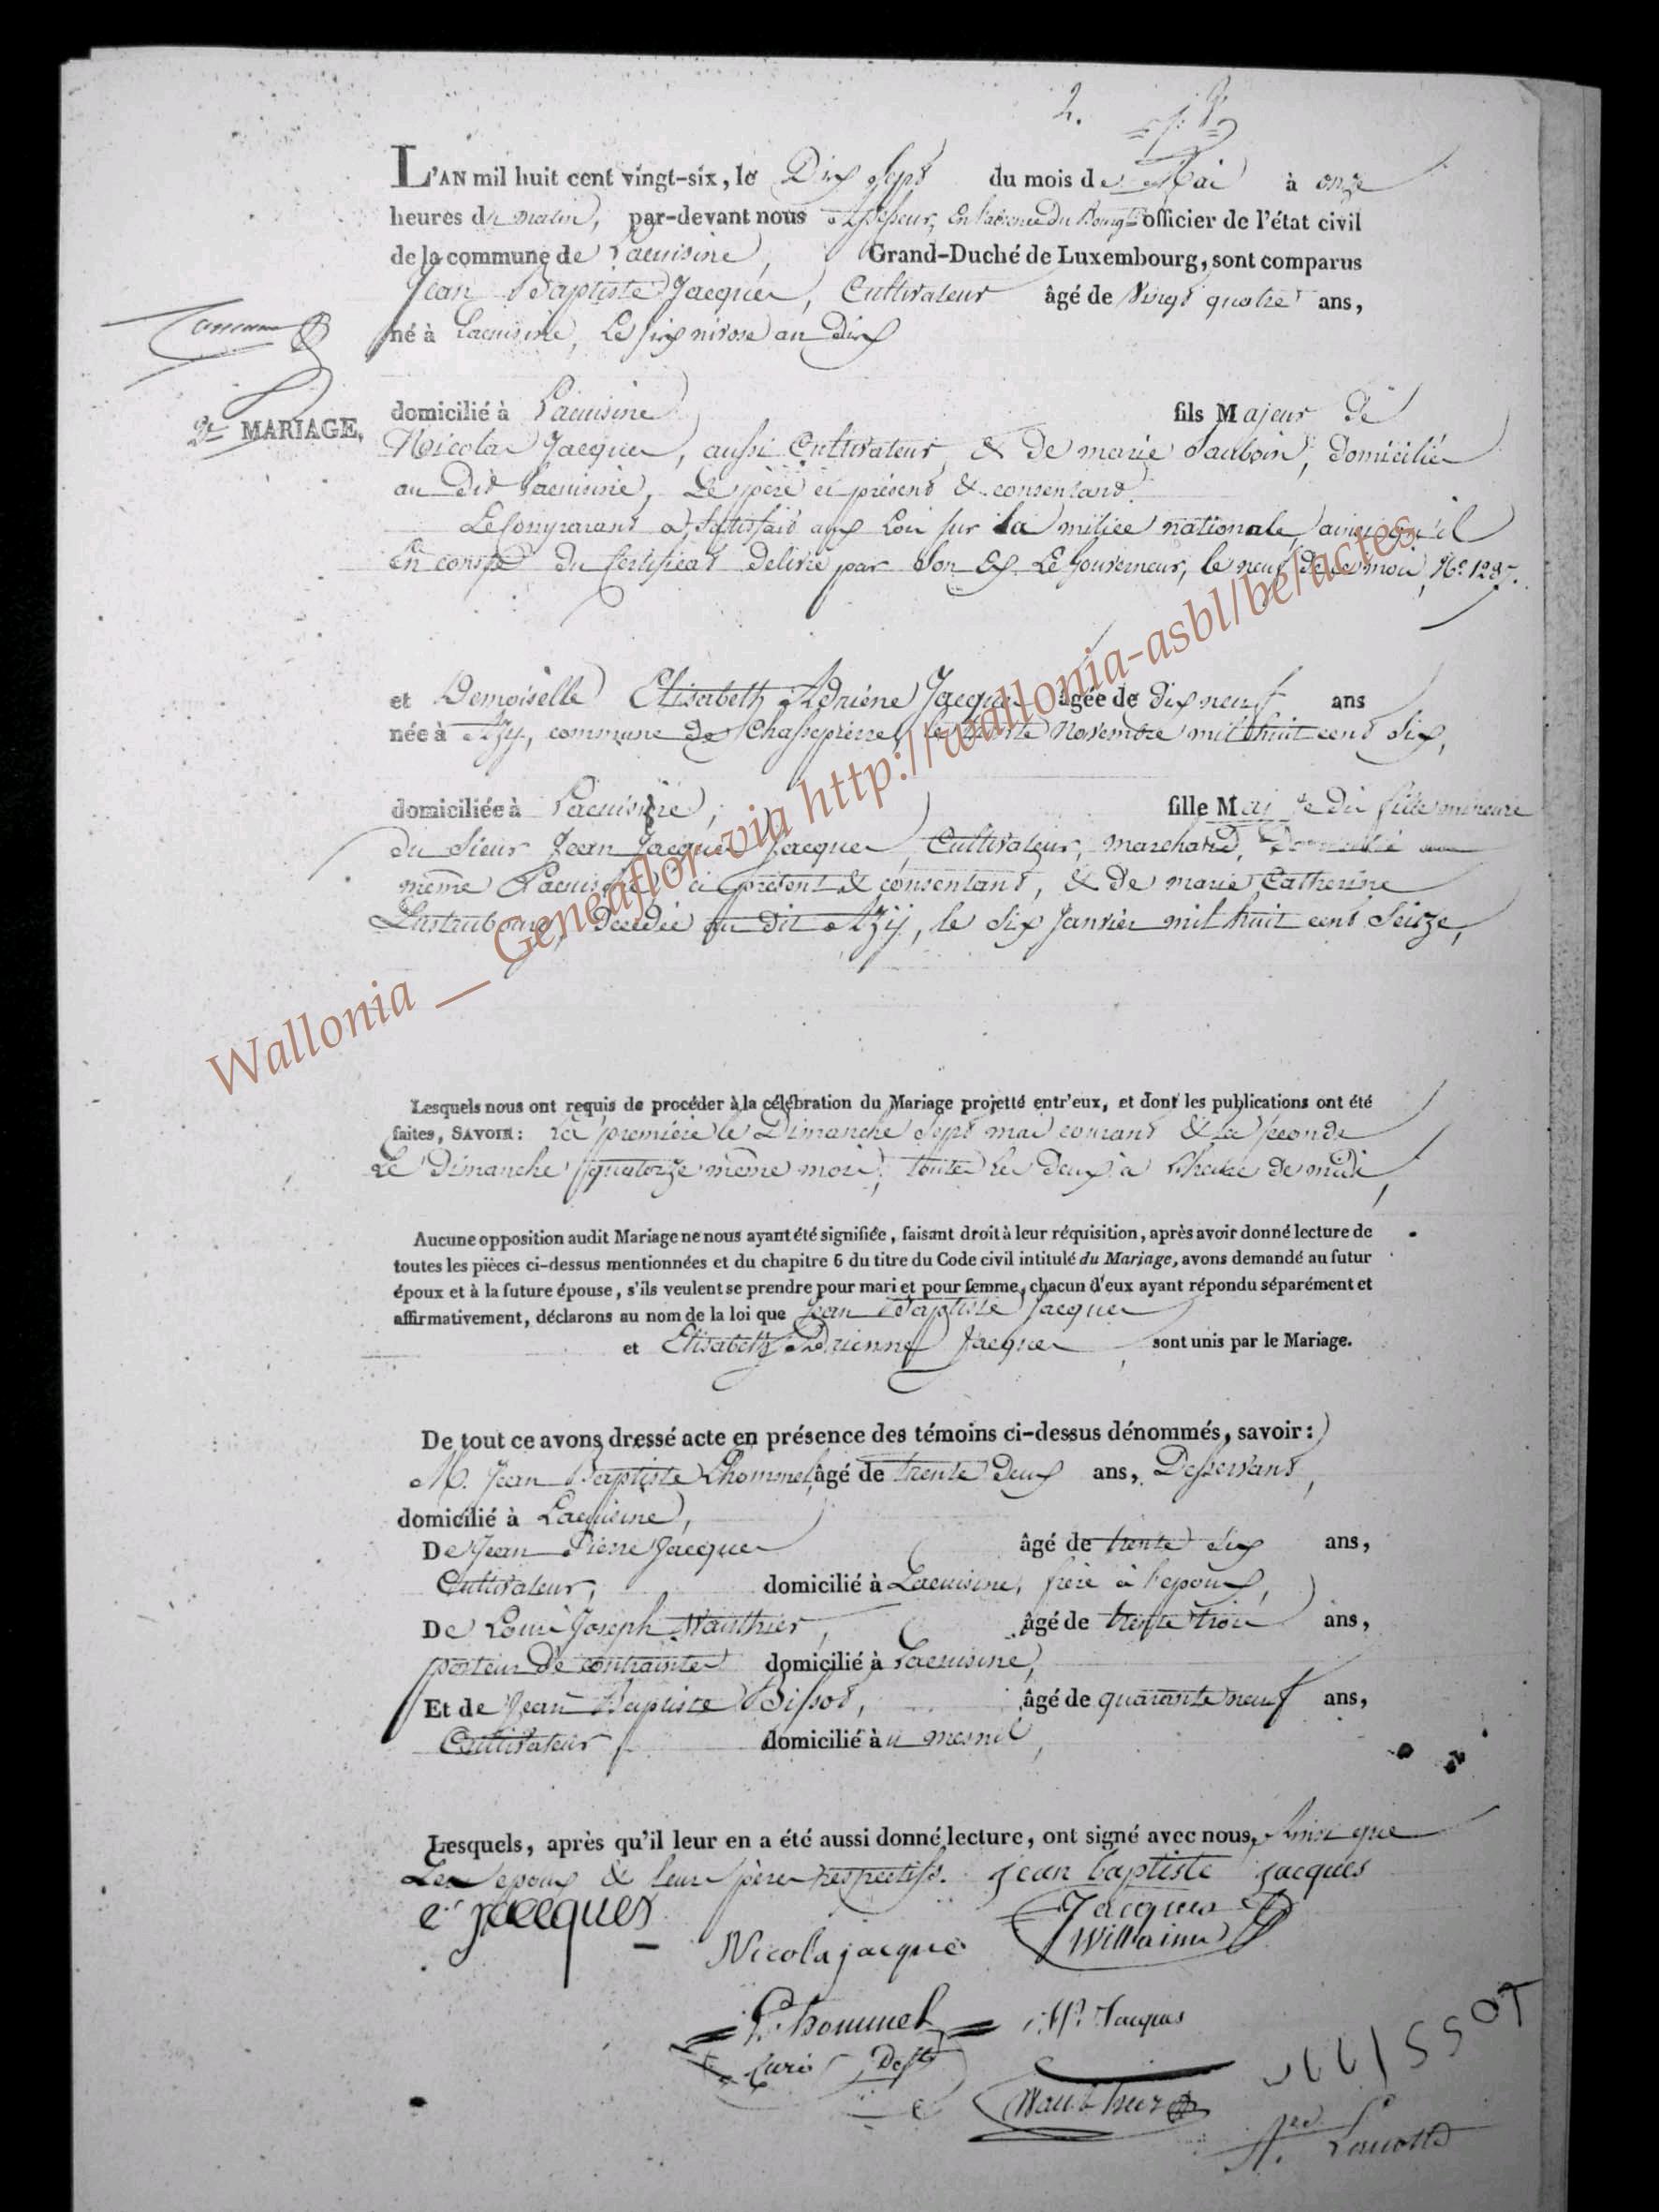 2.
L'AN mil huit cent vingt-six, le Dix Sept du mois de Mai à onze
heures du matin, par-devant nous Assesseur, en l'absence du Bourg. officier de l'état civil
de la commune de Lacuisine, Grand-Duché de Luxembourg, sont comparus
Jean Baptiste Jacques, Cultivateur âgé de Vingt quatre ans,
né à Lacuisine, Le six nivose an Dix
domicilié à Lacuisine fils Majeur de
2e MARIAGE,
Nicolas Jacques, aussi Cultivateur, & de marie domiciliés
au Dit Lacuisine, Le père ci présent & consentant.
Le Comparant a satisfait aux Lois sur la milice nationale, ainsi qu'il
en conste du Certificat délivré par Son Ex. Le Gouverneur, le neuf de ce mois, No. 1287.
et Demoiselle Elisabeth Adriène Jacques âgée de dix neuf ans
née à Azy, commune de Chassepierre, le trente Novembre mil huit cent Six,
domiciliée à Lacuisine, fille Maj te Dis fille mineure
du Sieur Jean Jacques Jacques, Cultivateur, marchand, Domicilié au
même Lacuisine, ci présent & consentant, & de marie Catherine
décédée au dit Azy, le Six Janvier mil huit cent Seize,
Lesquels nous ont requis de procéder à la célébration du Mariage projetté entr'eux, et dont les publications ont été
faites, SAVOIR: La première le Dimanche Sept mai courant & la seconde
Le Dimanche quatorze même mois, toutes les deux à l'heure de midi,
Aucune opposition audit Mariage ne nous ayant été signifiée, faisant droit à leur réquisition, après avoir donné lecture de
toutes les pièces ci-dessus mentionnées et du chapitre 6 du titre du Code civil intitulé du Mariage, avons demandé au futur
époux et à la future épouse, s'ils veulent se prendre pour mari et pour femme, chacun d'eux ayant répondu séparément et
affirmativement, déclarons au nom de la loi que Jean Baptiste Jacques
et Elisabeth Adrienne Jacques sont unis par le Mariage.
De tout ce avons dressé acte en présence des témoins ci-dessus dénommés, savoir:
M. Jean Baptiste Lhommel, âgé de trente Deux ans, Desservant,
domicilié à Lacuisine,
De Jean Pierre Jacques âgé de trente Six ans,
Cultivateur, domicilié à Lacuisine, frère à l'époux,
De Louis Joseph Wauthier, âgé de trente trois ans,
porteur de contraintes domicilié à Lacuisine,
Et de Jean Baptiste Bissot, âgé de quarante neuf ans,
Cultivateur domicilié à u mesnil,
Lesquels, après qu'il leur en a été aussi donné lecture, ont signé avec nous, Ainsi que
Les époux & leurs pères respectifs. jean baptiste jacques
e jacques
Jacques
Willaime
Nicola jacque
Lhommel
Jacques
Curé Desst
Wauthier
BISSOT
Wallonia __ Geneaflor via http://wallonia-asbl/be/actes